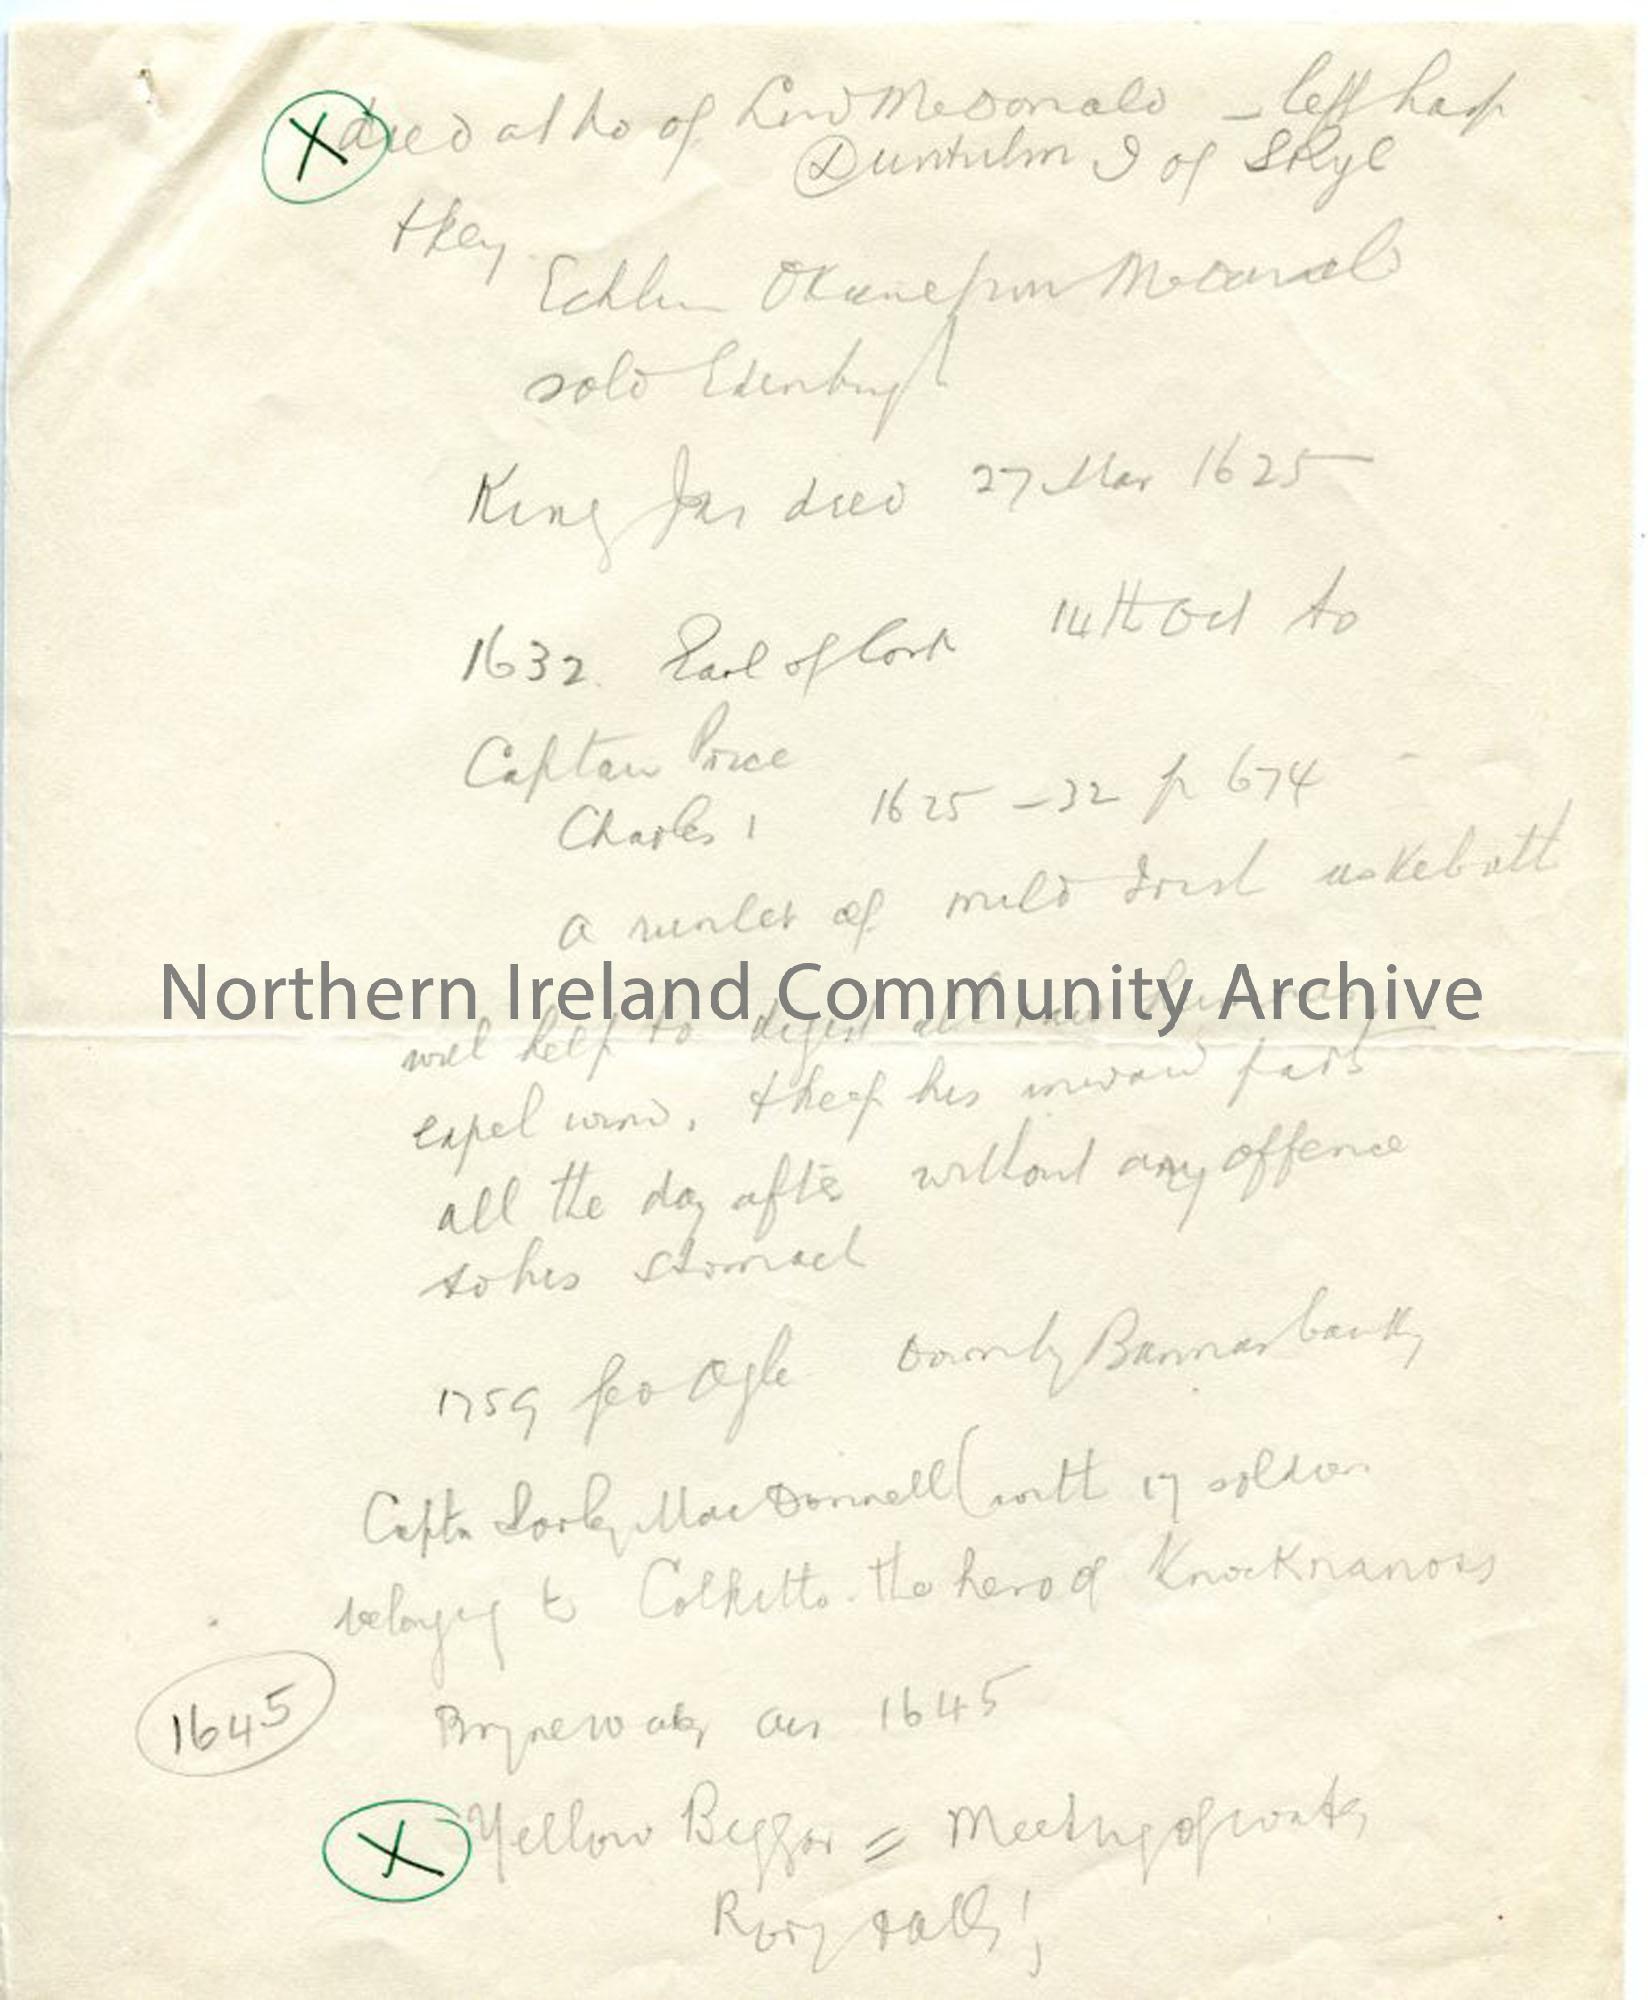 X died at ho of Lord McDonald – left harp
Duntulm I of Skye
they
Echlin OKane from McDonald
sold Edinburgh
King Jas died 27 Mar 1625
1632. Earl of Cork 14th Oct to
Captain Price
Charles 1 1625 – 32 p 674
a runlet of mild Irish uskebath
Northern Ireland Community Archive
will help to digest all raw humours
expel wind, & keep his inward parts
all the day after without any offence
to his stomach
1759 Geo Ogle Bannas banks
Captn Sorley MacDonnell (with 17 soldiers
belonging to Colkitto. the hero of Knocknanoss
1645
air 1645
X Yellow Beggar = Meeting of waters
Rory Dall's!